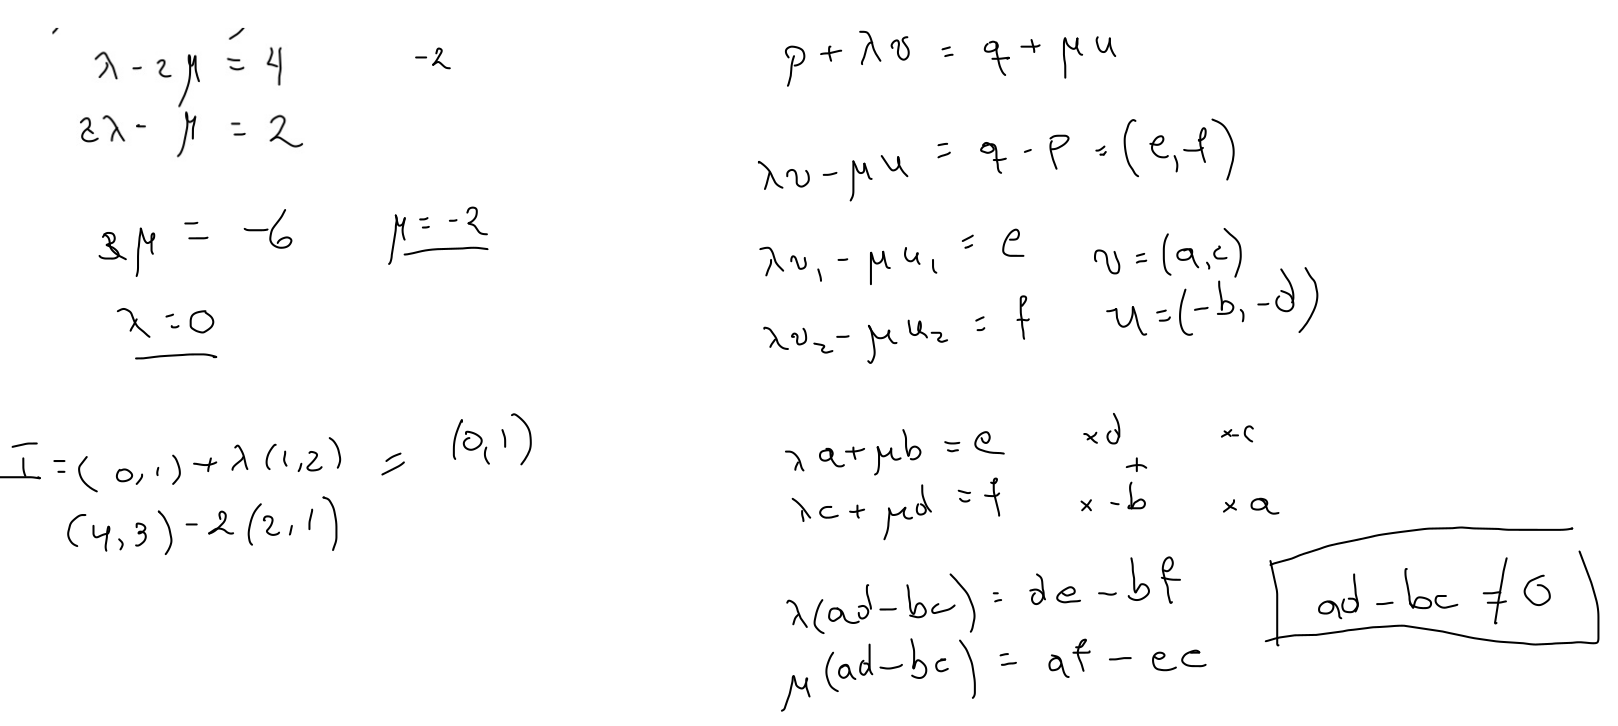 λ - 2μ = 4    -2
2λ - μ = 2
3μ = -6    μ = -2
λ = 0
I = (0,1) + λ(1,2) = (0,1)
(4,3) - 2(2,1)
p + λv = q + μu
λv - μu = q - p = (e,f)
λv₁ - μu₁ = e    v = (a,c)
λv₂ - μu₂ = f    u = (-b,-d)
λa + μb = e    ×d    ×-c
+
λc + μd = f    ×-b    ×a
λ(ad-bc) = de - bf
ad - bc ≠ 0
μ(ad-bc) = af - ec